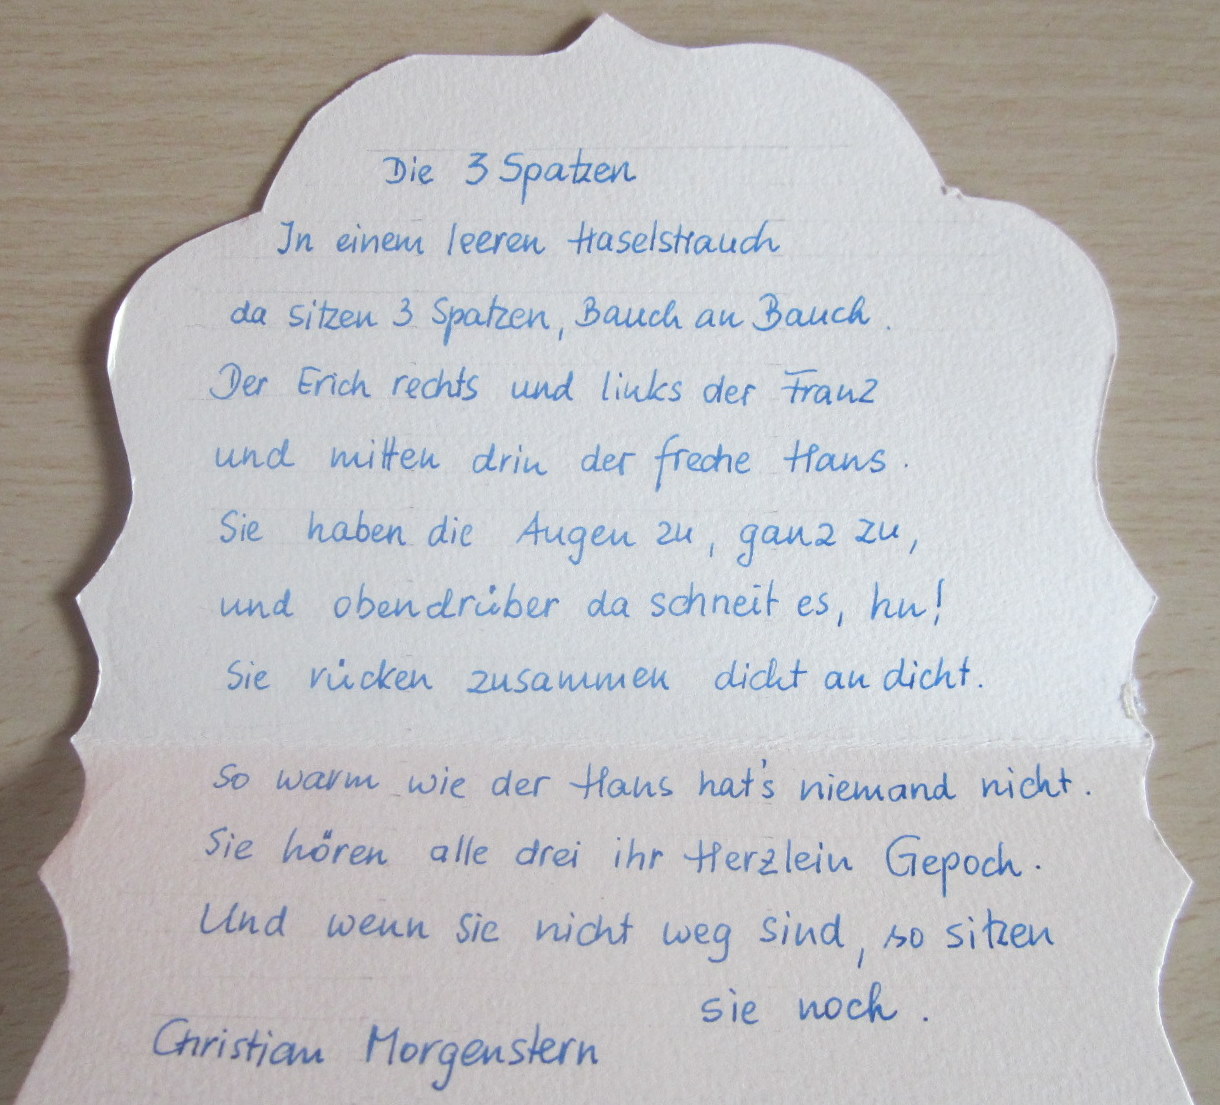 Die 3 Spatzen
In einem leeren Haselstrauch
da sitzen 3 Spatzen, Bauch an Bauch.
Der Erich rechts und links der Franz
und mitten drin der freche Hans.
Sie haben die Augen zu, ganz zu,
und obendrüber da schneit es, hu!
Sie rücken zusammen dicht an dicht.
So warm wie der Hans hat's niemand nicht.
Sie hören alle drei ihr Herzlein Gepoch.
Und wenn sie nicht weg sind, so sitzen
sie noch.
Christian Morgenstern